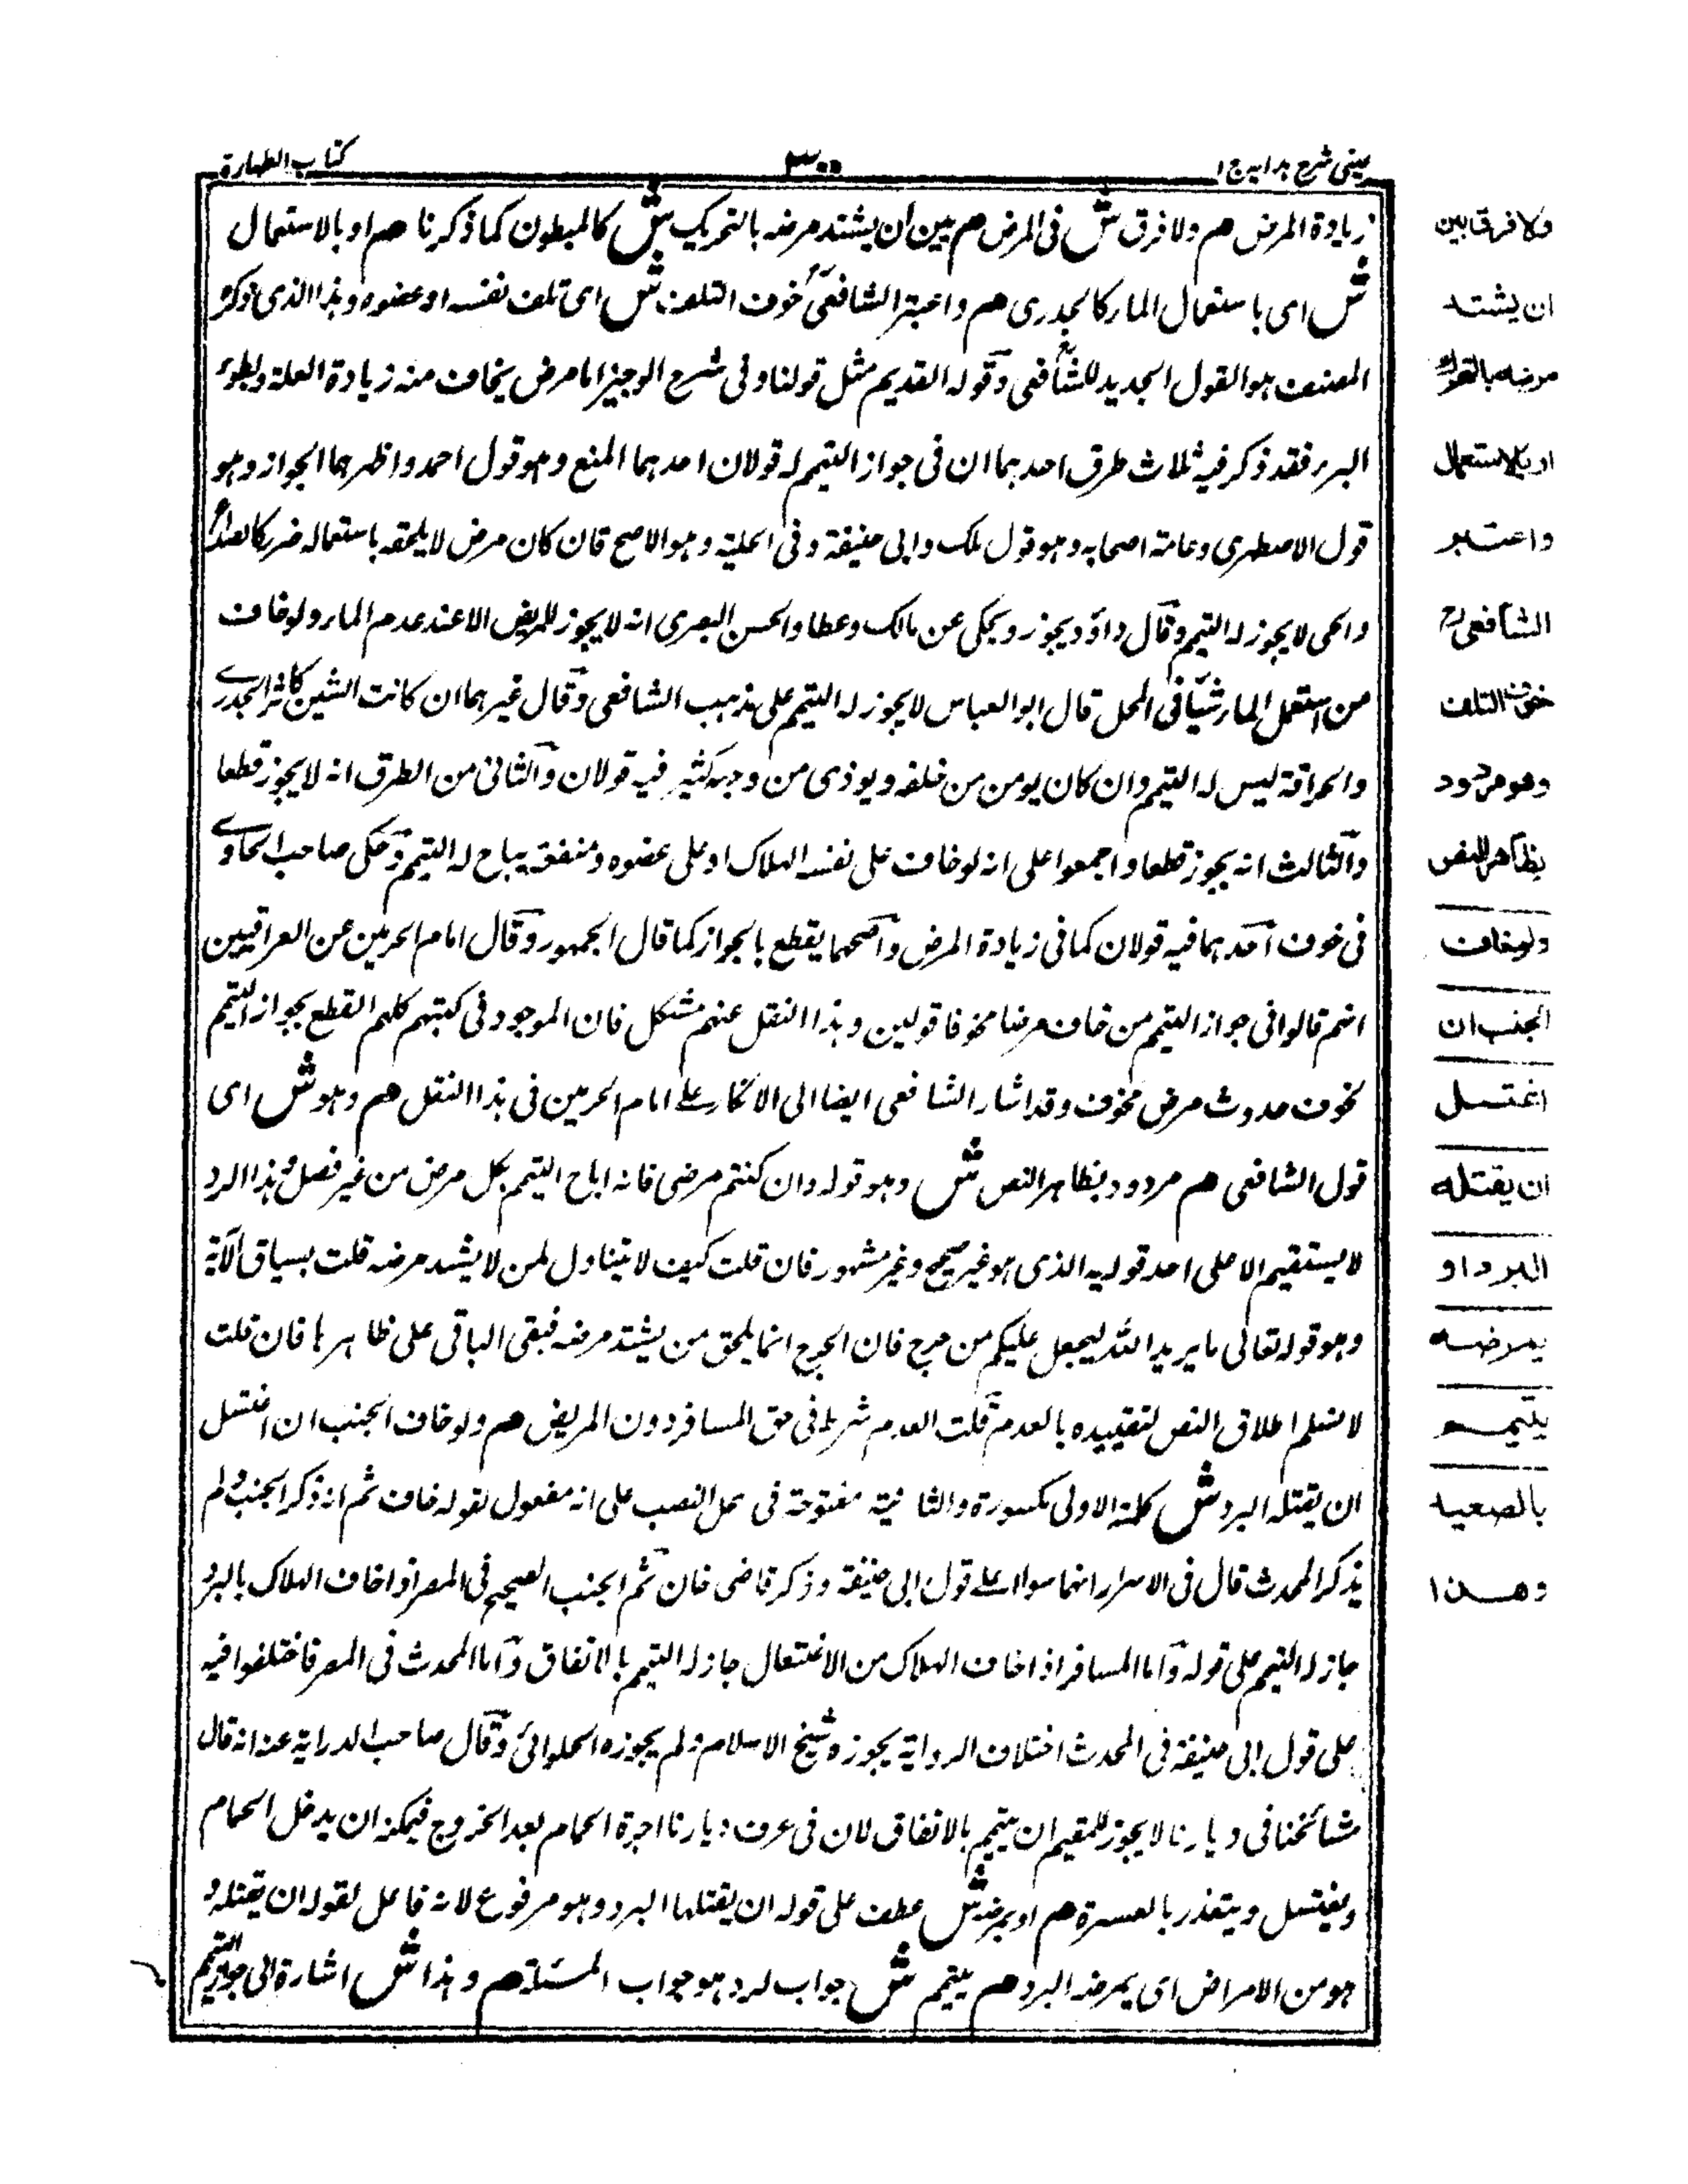 عينى شرح هدايه ج ١
٣٠٠
كتاب الطهارة
زيادة المرض هم ولا فرق ش فى المرض هم بين ان يشتد مرضه بالتحريك ش كالمبطون كما ذكرنا هم او بالاستعمال
ش اى باستعمال الماء كالجدرى هم واعتبر الشافعى خوف التلف ش اى تلف نفسه او عضوه وهذا الذى ذكره
المصنف هو القول الجديد للشافعى وقوله القديم مثل قولنا وفى شرح الوجيز اما مرض يخاف منه زيادة العلة وبطوء
البرء فقد ذكر فيه ثلاث طرق احدهما ان فى جواز التيمم له قولان احدهما المنع وهو قول احمد واظهرهما الجواز وهو
قول الاصطخرى وعامة اصحابه وهو قول ملك وابى حنيفة وفى الحلية وهو الاصح فان كان مرض لا يلحقه باستعماله ضرر كالصداع
والحمى لا يجوز له التيمم وقال داؤد يجوز ويحكى عن مالك وعطا والحسن البصرى انه لا يجوز للمريض الا عند عدم الماء ولو خاف
من استعمل الماء شيأ فى المحل قال ابو العباس لا يجوز له التيمم على مذهب الشافعى وقال غيرهما ان كانت الشين كاثر الجدرى
والحراقة ليس له التيمم وان كان يومن من خلفه ويوذى من وجهه كثير فيه قولان والثانى من الطرق انه لا يجوز قطعا
والثالث انه يجوز قطعا واجمعوا على انه لو خاف على نفسه الهلاك او على عضوه ومنفعته يباح له التيمم وحكى صاحب الحاوى
فى خوف احدهما فيه قولان كما فى زيادة المرض واصحهما يقطع بالجواز كما قال الجمهور وقال امام الحرمين عن العراقيين
انهم قالوا فى جواز التيمم من خاف مرضا مخوفا قولين وهذا النقل عنهم مشكل فان الموجود فى كتبهم كلهم القطع بجواز التيمم
لخوف حدوث مرض مخوف وقد اشار الشافعى ايضا الى الانكار على امام الحرمين فى هذا النقل هم وهو ش اى
قول الشافعى هم مردود بظاهر النص ش وهو قوله وان كنتم مرضى فانه اباح التيمم بكل مرض من غير فصل وهذا الرد
لا يستقيم الا على احد قوليه الذى هو غير صحيح وغير مشهور فان قلت كيف لا يتناول لمن لا يشد مرضه قلت بسياق الآية
وهو قوله تعالى ما يريد الله ليجعل عليكم من حرج فان الحرج انما يلحق من يشتد مرضه فبقى الباقى على ظاهرها فان قلت
لا نسلم اطلاق النص لتقييده بالعدم قلت العدم شرط فى حق المسافر دون المريض هم ولو خاف الجنب ان اغتسل
ان يقتله البرد ش كلمة الاولى مكسورة والثانية مفتوحة فى محل النصب على انه مفعول لقوله خاف ثم انه ذكر الجنب ولم
يذكر المحدث قال فى الاسرار انهما سواء على قول ابى حنيفة وذكر قاضى خان ثم الجنب الصحيح فى المصر اذا خاف الهلاك بالبرد
جاز له التيمم على قوله واما المسافر اذا خاف الهلاك من الاغتسال جاز له التيمم بالاتفاق واما المحدث فى المصر فاختلفوا فيه
على قول ابى حنيفة فى المحدث اختلاف الرواية يجوزه شيخ الاسلام ولم يجوزه الحلوانى وقال صاحب الدراية عندانه قال
مشائخنا فى ديارنا لا يجوز للمقيم ان يتيمم بالاتفاق لان فى عرف ديارنا اجرة الحمام بعد الخروج فيمكنه ان يدخل الحمام
ويغتسل ويتعذر بالعسرة هم او يمرضه ش عطف على قوله ان يقتلها البرد وهو مرفوع لانه فاعل لقوله ان يقتله و
هو من الامراض اى يمرضه البرد هم يتيمم ش جواب لرد هو جواب المسئلة هم وهذا ش اشارة الى جواز التيمم
ولا فرق بين
ان يشتد
مرضه بالتحرك
او بالاستعمال
واعتبر
الشافعى رح
خوف التلف
وهو مردود
بظاهر النص
ولو خاف
الجنب ان
اغتسل
ان يقتله
البرد او
يمرضه
يتيمم
بالصعيد
وهذا